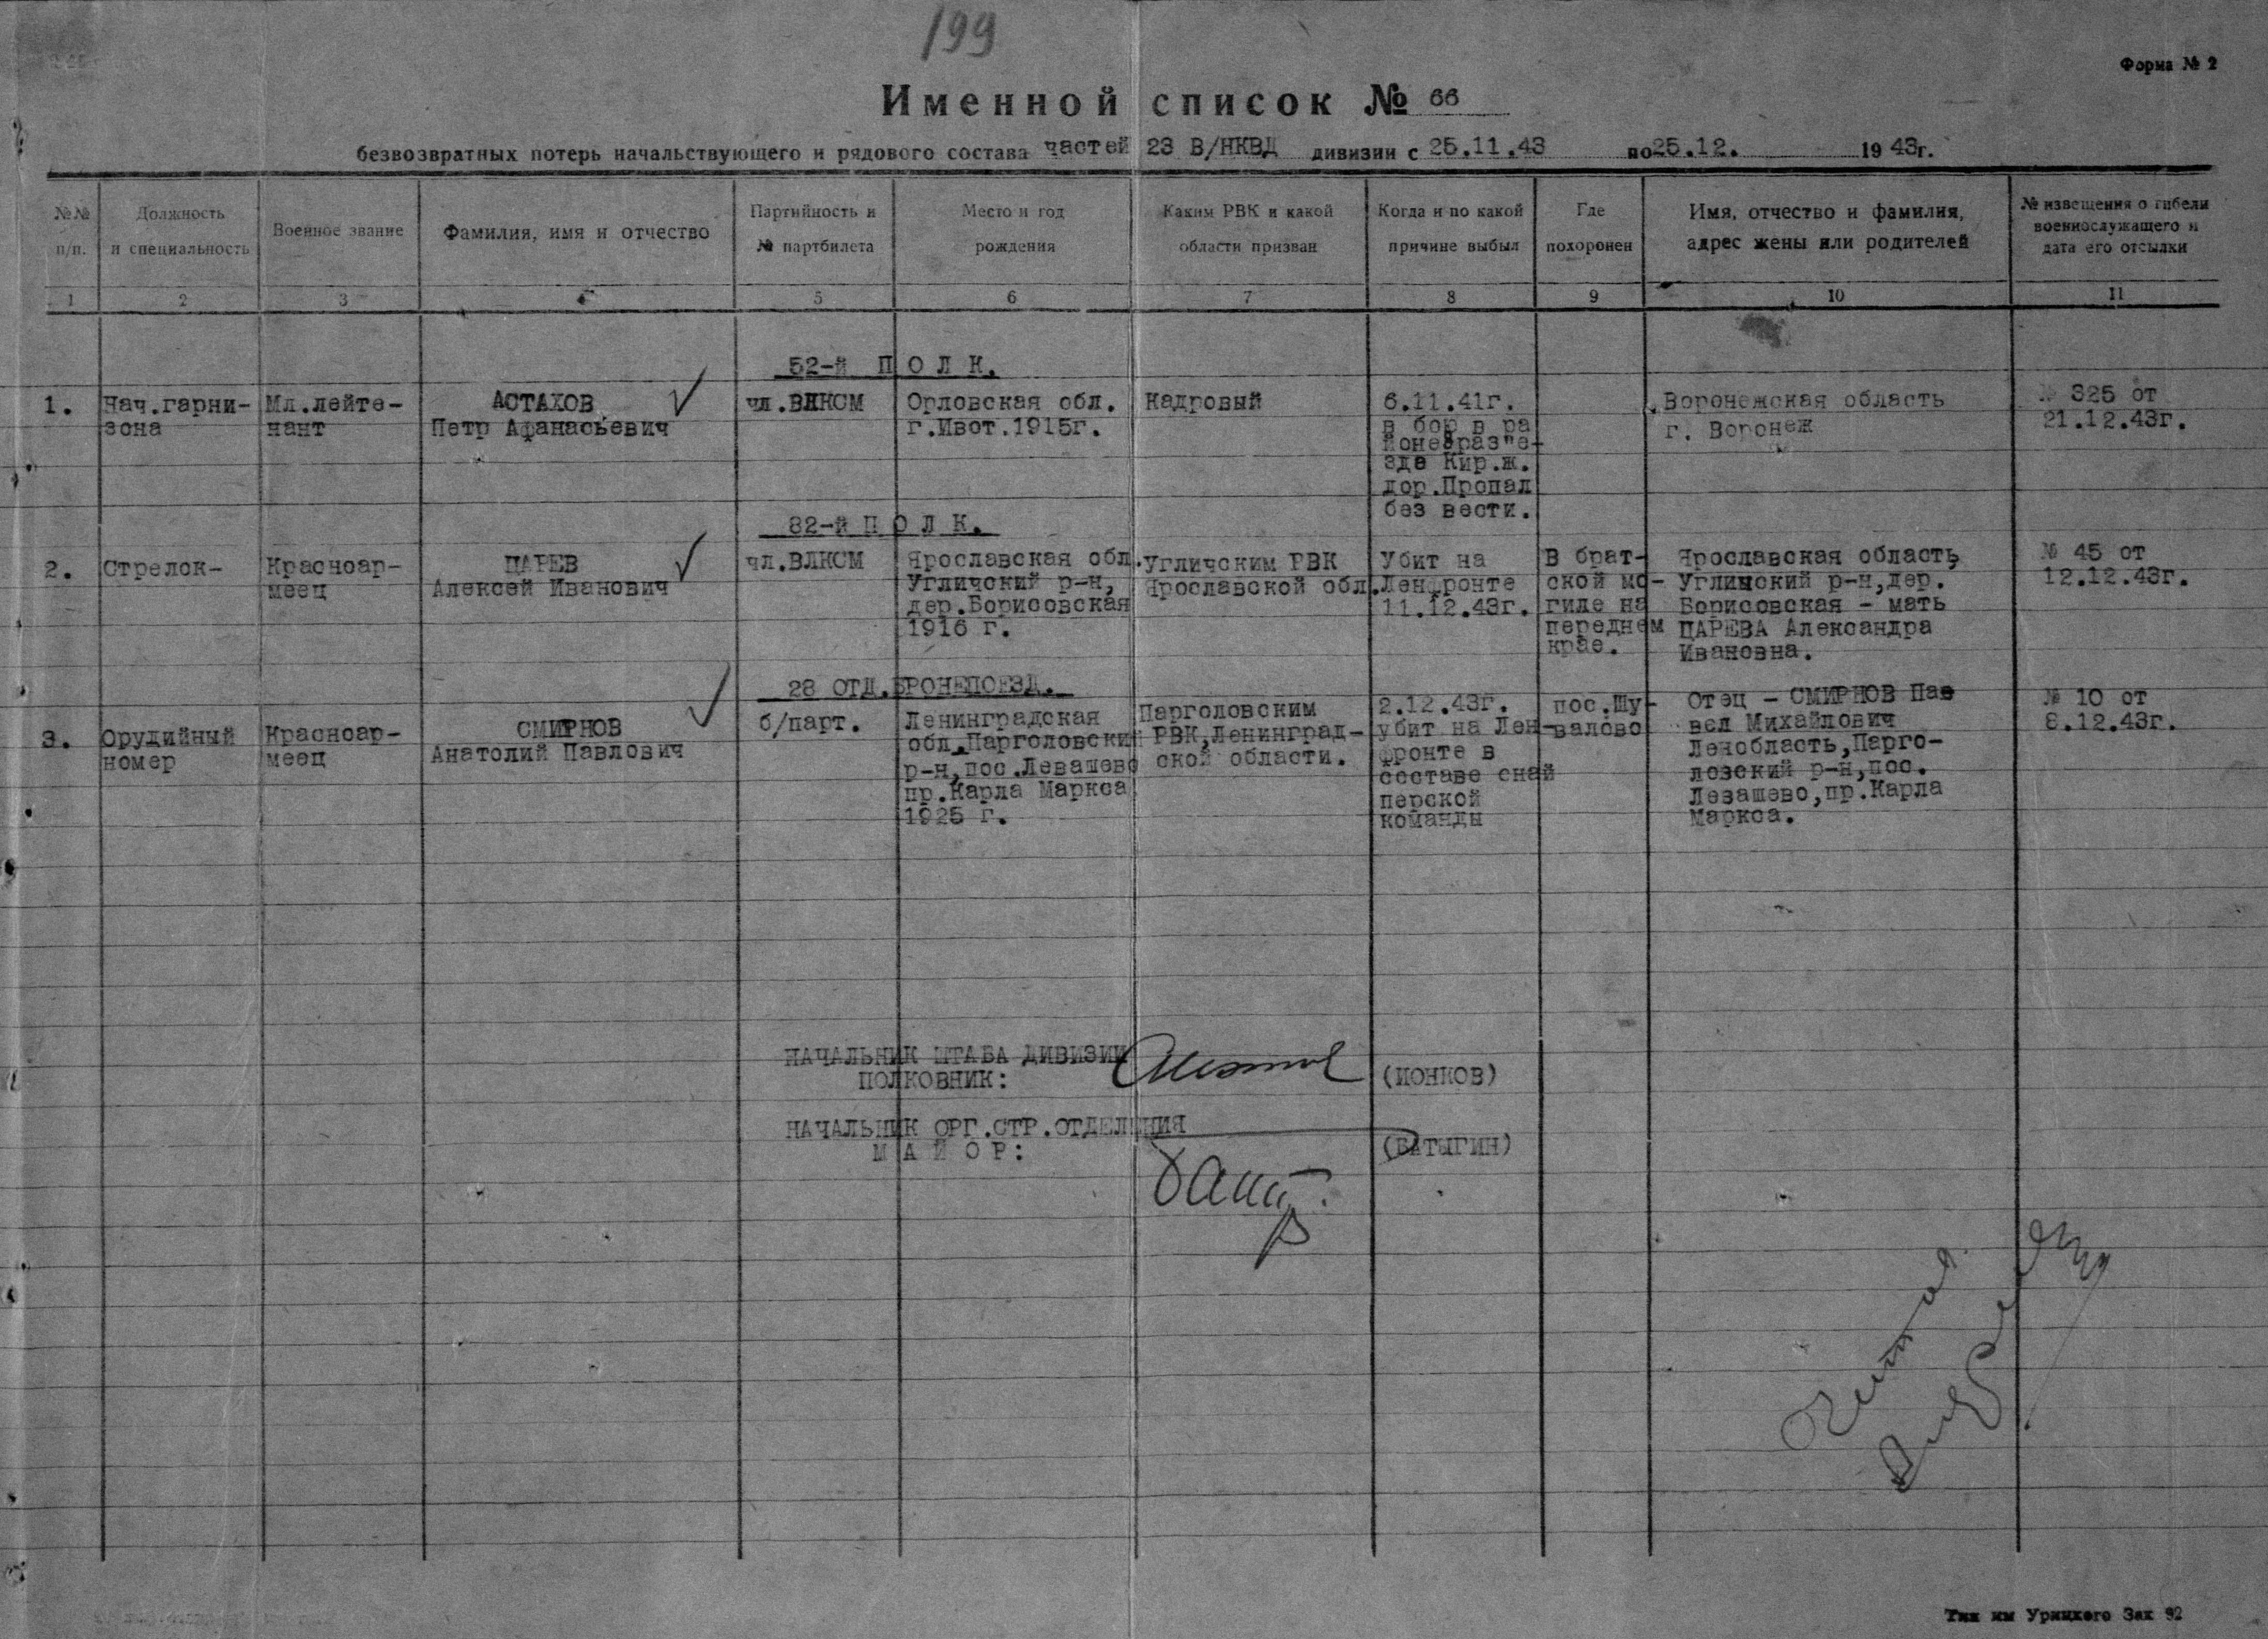 199
Форма № 2
Именной список № 66
безвозвратных потерь начальствующего и рядового состава частей 23 В/НКВД дивизии с 25.11.43 по 25.12. 1943г.
№№ п/п.
Должность и специальность
Военное звание
Фамилия, имя и отчество
Партийность и № партбилета
Место и год рождения
Каким РВК и какой области призван
Когда и по какой причине выбыл
Где похоронен
Имя, отчество и фамилия, адрес жены или родителей
№ извещения о гибели военнослужащего и дата его отсылки
1 2 3 4 5 6 7 8 9 10 11
52-й П О Л К.
1.
Нач.гарни-
зона
Мл.лейте-
нант
АСТАХОВ
Петр Афанасьевич
чл.ВЛКСМ
Орловская обл.
г.Ивот.1915г.
Кадровый
6.11.41г.
в бою в ра
йоне разъе-
зде Кир.ж.
дор.Пропал
без вести.
Воронежская область
г. Воронеж
№ 325 от
21.12.43г.
82-й П О Л К.
2.
Стрелок-
Красноар-
меец
ЦАРЕВ
Алексей Иванович
чл.ВЛКСМ
Ярославская обл.
Угличский р-н,
дер.Борисовская
1916 г.
Угличским РВК
Ярославской обл.
Убит на
Ленфронте
11.12.43г.
В брат-
ской мо-
гиле на
переднем
крае.
Ярославская область,
Угличский р-н,дер.
Борисовская - мать
ЦАРЕВА Александра
Ивановна.
№ 45 от
12.12.43г.
28 ОТД.БРОНЕПОЕЗД.
3.
Орудийный
номер
Красноар-
меец
СМИРНОВ
Анатолий Павлович
б/парт.
Ленинградская
обл.Парголовский
р-н,пос.Левашево
пр.Карла Маркса
1925 г.
Парголовским
РВК,Ленинград-
ской области.
2.12.43г.
убит на Лен-
фронте в
составе снай
перской
команды
пос.Шу-
валово
Отец - СМИРНОВ Пав
вел Михайлович
Ленобласть,Парго-
ловский р-н,пос.
Левашево,пр.Карла
Маркса.
№ 10 от
8.12.43г.
НАЧАЛЬНИК ШТАБА ДИВИЗИИ
ПОЛКОВНИК: (ИОНКОВ)
НАЧАЛЬНИК ОРГ.СТР.ОТДЕЛЕНИЯ
М А Й О Р: (БАТЫГИН)
Тип им Урицкого Зак 92